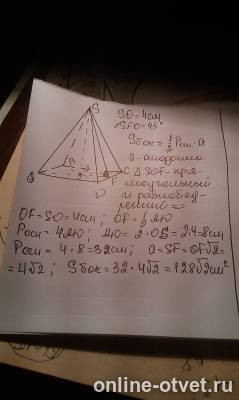 SO = 4см
∠SFO = 45°
Sбок = 1/2 Pосн · a
a - апофема
△SOF - пря-
моугольный
и равнобед-
ренный ⇒
S
B
O
A
C
F
D
OF = SO = 4см; OF = 1/2 AD
Pосн = 4AD; AD = 2·OF = 2·4 = 8см
Pосн = 4·8 = 32см; a = SF = OF√2 =
= 4√2; Sбок = 32·4√2 = 128√2 см²
online-otvet.ru